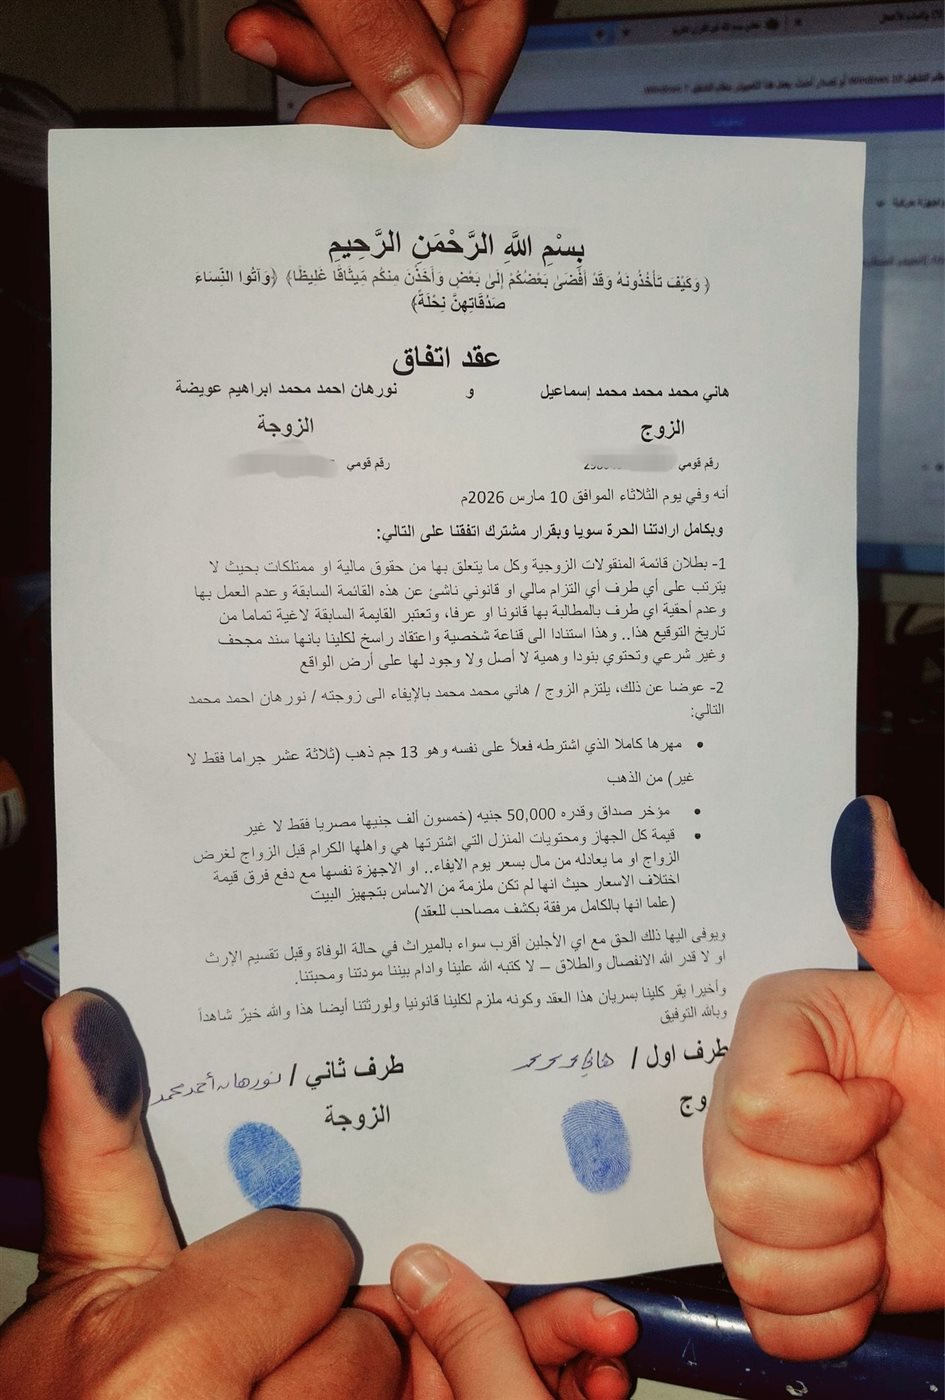 بِسْمِ اللَّهِ الرَّحْمَنِ الرَّحِيمِ
﴿ وَكَيْفَ تَأْخُذُونَهُ وَقَدْ أَفْضَىٰ بَعْضُكُمْ إِلَىٰ بَعْضٍ وَأَخَذْنَ مِنكُم مِّيثَاقًا غَلِيظًا﴾ ﴿وَآتُوا النِّسَاءَ
صَدُقَاتِهِنَّ نِحْلَةً﴾
عقد اتفاق
هاني محمد محمد محمد إسماعيل و نورهان احمد محمد ابراهيم عويضة
الزوج الزوجة
رقم قومي رقم قومي
أنه وفي يوم الثلاثاء الموافق 10 مارس 2026م
وبكامل ارادتنا الحرة سويا وبقرار مشترك اتفقنا على التالي:
1- بطلان قائمة المنقولات الزوجية وكل ما يتعلق بها من حقوق مالية او ممتلكات بحيث لا
يترتب على أي طرف أي التزام مالي او قانوني ناشئ عن هذه القائمة السابقة وعدم العمل بها
وعدم أحقية اي طرف بالمطالبة بها قانونا او عرفا، وتعتبر القايمة السابقة لاغية تماما من
تاريخ التوقيع هذا.. وهذا استنادا الى قناعة شخصية واعتقاد راسخ لكلينا بانها سند مجحف
وغير شرعي وتحتوي بنودا وهمية لا أصل ولا وجود لها على أرض الواقع
2- عوضا عن ذلك، يلتزم الزوج / هاني محمد محمد بالإيفاء الى زوجته / نورهان احمد محمد
التالي:
• مهرها كاملا الذي اشترطه فعلاً على نفسه وهو 13 جم ذهب (ثلاثة عشر جراما فقط لا
غير) من الذهب
• مؤخر صداق وقدره 50,000 جنيه (خمسون ألف جنيها مصريا فقط لا غير
• قيمة كل الجهاز ومحتويات المنزل التي اشترتها هي واهلها الكرام قبل الزواج لغرض
الزواج او ما يعادله من مال بسعر يوم الايفاء.. او الاجهزة نفسها مع دفع فرق قيمة
اختلاف الاسعار حيث انها لم تكن ملزمة من الاساس بتجهيز البيت
(علما انها بالكامل مرفقة بكشف مصاحب للعقد)
ويوفى اليها ذلك الحق مع اي الأجلين أقرب سواء بالميراث في حالة الوفاة وقبل تقسيم الإرث
او لا قدر الله الانفصال والطلاق – لا كتبه الله علينا وادام بيننا مودتنا ومحبتنا.
وأخيرا يقر كلينا بسريان هذا العقد وكونه ملزم لكلينا قانونيا ولورثتنا أيضا هذا والله خيرٌ شاهداً
وبالله التوفيق
طرف اول / هاني محمد محمد طرف ثاني / نورهان أحمد محمد
وج الزوجة